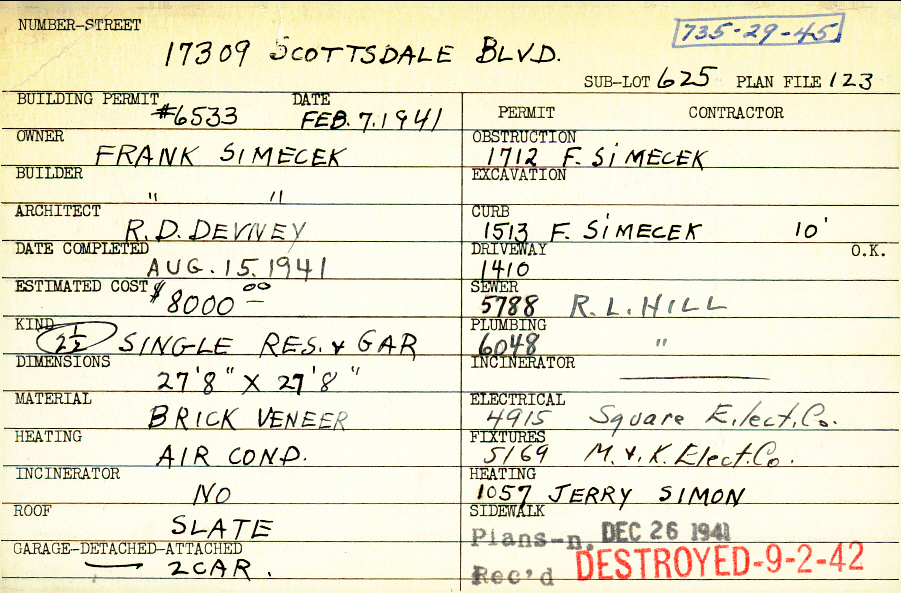 NUMBER-STREET
17309 SCOTTSDALE BLVD.
735-29-45
SUB-LOT 625 PLAN FILE 123
BUILDING PERMIT DATE
#6533 FEB. 7. 1941
OWNER
FRANK SIMECEK
BUILDER
" "
ARCHITECT
R. D. DEVNEY
DATE COMPLETED
AUG. 15. 1941
ESTIMATED COST
$8000 00
KIND
2 1/2 SINGLE RES. & GAR
DIMENSIONS
27'8" X 27'8"
MATERIAL
BRICK VENEER
HEATING
AIR COND.
INCINERATOR
NO
ROOF
SLATE
GARAGE-DETACHED-ATTACHED
— 2 CAR.
PERMIT CONTRACTOR
OBSTRUCTION
1712 F. SIMECEK
EXCAVATION
CURB
1513 F. SIMECEK 10'
DRIVEWAY O.K.
1410
SEWER
5788 R. L. HILL
PLUMBING
6048 "
INCINERATOR
—
ELECTRICAL
4915 Square Elect. Co.
FIXTURES
5169 M. & K. Elect. Co.
HEATING
1057 JERRY SIMON
SIDEWALK
Plans-n. DEC 26 1941
Rec'd DESTROYED-9-2-42